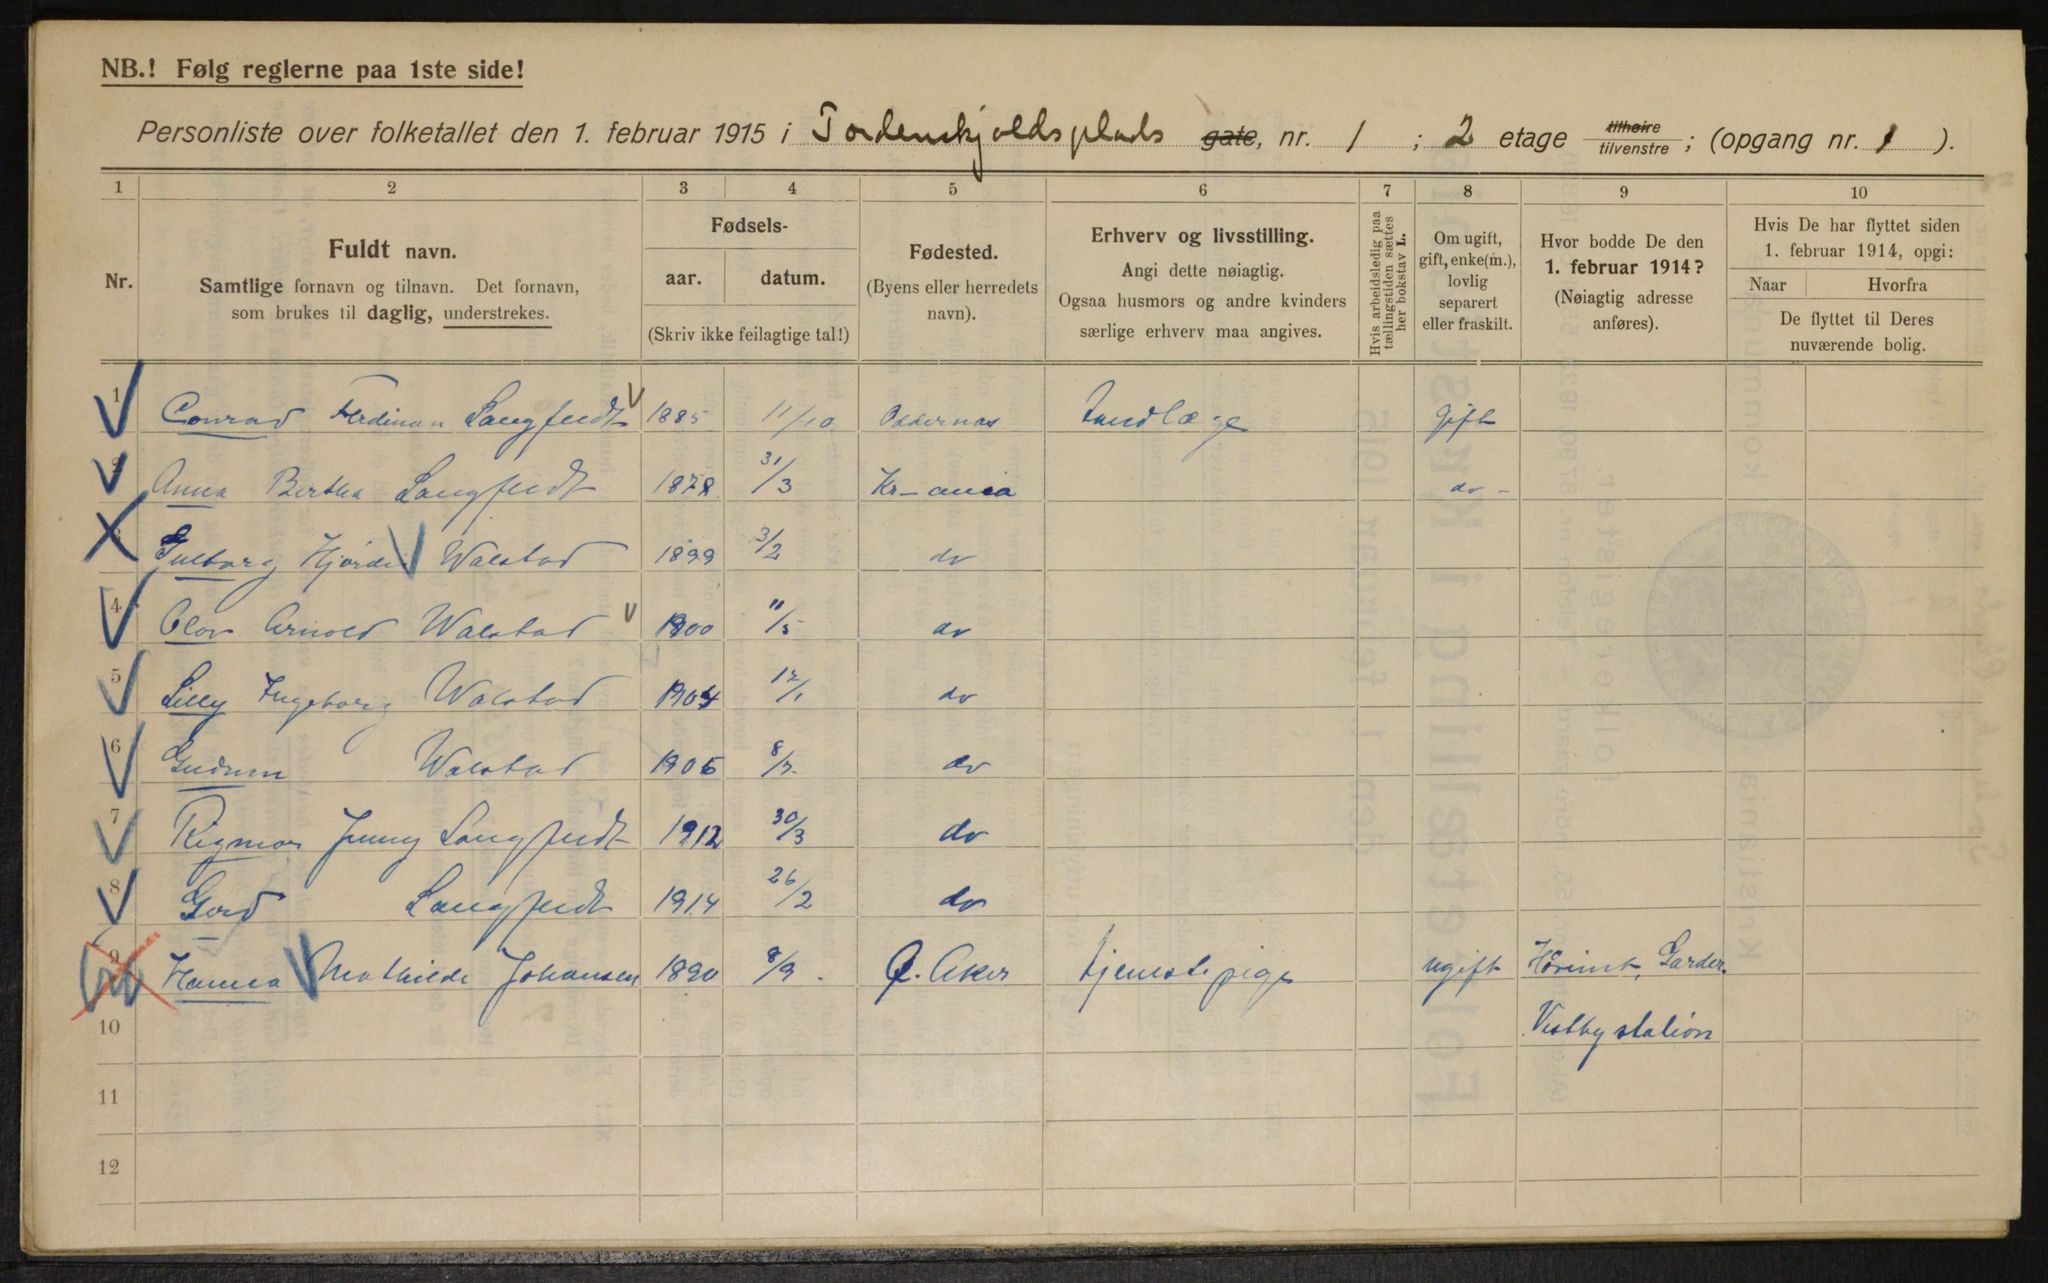 NB.! Følg reglerne paa 1ste side!
Personliste over folketallet den 1. februar 1915 i Tordenskjoldsplads gate, nr. 1 ; 2 etage tilhøire tilvenstre ; (opgang nr. 1 ).
1 2 3 4 5 6 7 8 9 10
Nr.
Fuldt navn.
Samtlige fornavn og tilnavn. Det fornavn,
som brukes til daglig, understrekes.
Fødsels-
aar. datum.
(Skriv ikke feilagtige tal!)
Fødested.
(Byens eller herredets
navn).
Erhverv og livsstilling.
Angi dette nøiagtig.
Ogsaa husmors og andre kvinders
særlige erhverv maa angives.
Hvis arbeidsledig paa
tællingstiden sættes
her bokstav L.
Om ugift,
gift, enke(m.),
lovlig
separert
eller fraskilt.
Hvor bodde De den
1. februar 1914?
(Nøiagtig adresse
anføres).
Hvis De har flyttet siden
1. februar 1914, opgi:
Naar Hvorfra
De flyttet til Deres
nuværende bolig.
1 Conrad Ferdinan Langfeldt 1885 11/10 Oddernas Tandlæge gift
2 Anna Bertha Langfeldt 1878 31/3 Kr-ania do -
3 Hjørdis Walstad 1899 3/2 do
4 Olav Arnold Walstad 1900 11/5 do
5 Lilly Ingeborg Walstad 1904 12/1 do
6 Gudrun Walstad 1906 8/7 do
7 Rigmor Jenny Langfeldt 1912 30/3 do
8 Gerd Langfeldt 1914 26/2 do
9 Hanna Mathilde Johansen 1890 8/9 Ø. Aker tjenestepige ugift Garder.
10 Vestby station
11
12